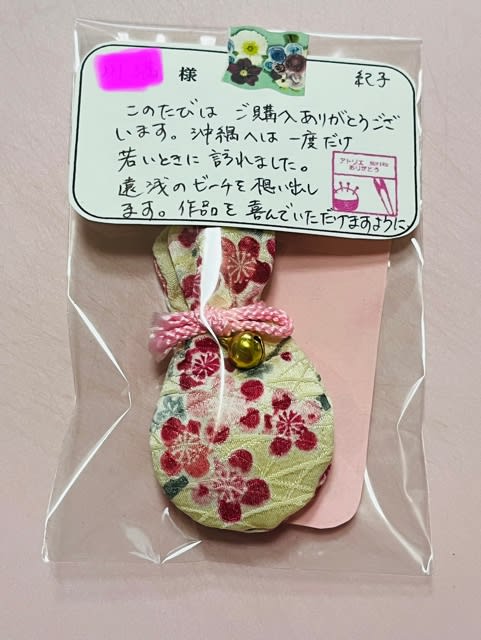 様
紀子
このたびは ご購入ありがとうござ
います。沖縄へは一度だけ
若いときに訪れました。
遠浅のビーチを想い出し
ます。作品を喜んでいただけますように
アトリエ
ありがとう